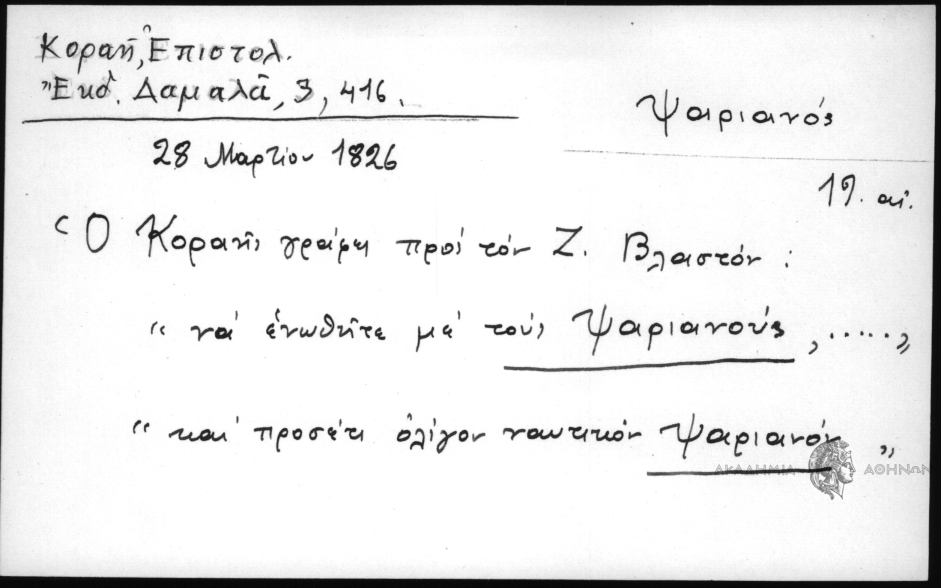 Κοραῆ, Ἐπιστολ.
Ἔκδ. Δαμαλᾶ, 3, 416.
Ψαριανός
28 Μαρτίου 1826
19. αἰ.
Ὁ Κοραῆς γράφει πρός τόν Ζ. Βλαστόν:
“ νά ἑνωθῆτε μέ τούς Ψαριανούς, ..... „
“ καί προσέτι ὀλίγον ναυτικόν Ψαριανόν „
ΑΚΑΔΗΜΙΑ ΑΘΗΝΩΝ